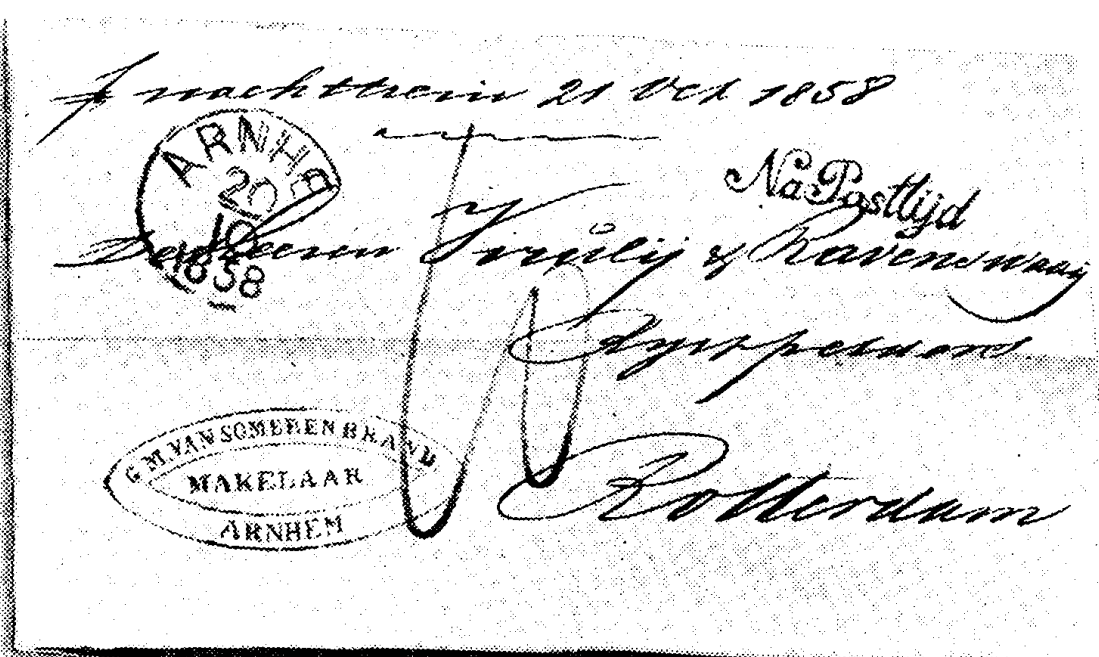 p nachttrein 21 Oct 1858
ARNHEM
20
10
1858
Na Posttijd
De Heeren Viruly & Ravenswaaij
Rotterdam
G M VAN SOMEREN BRAND
MAKELAAR
ARNHEM